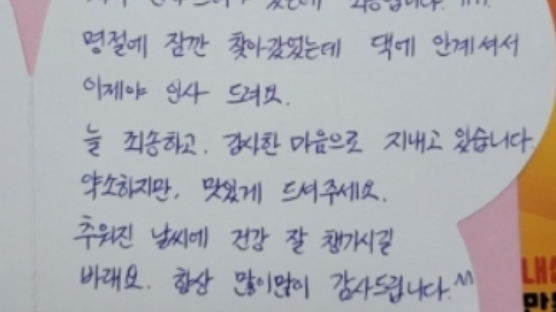 인사드려야 했는데 죄송합니다. ㅠㅠ
명절에 잠깐 찾아갔었는데 댁에 안계셔서
이제야 인사 드려요.
늘 죄송하고. 감사한 마음으로 지내고 있습니다.
약소하지만, 맛있게 드셔주세요.
추워진 날씨에 건강 잘 챙기시길
바래요. 항상 많이많이 감사드립니다.^^